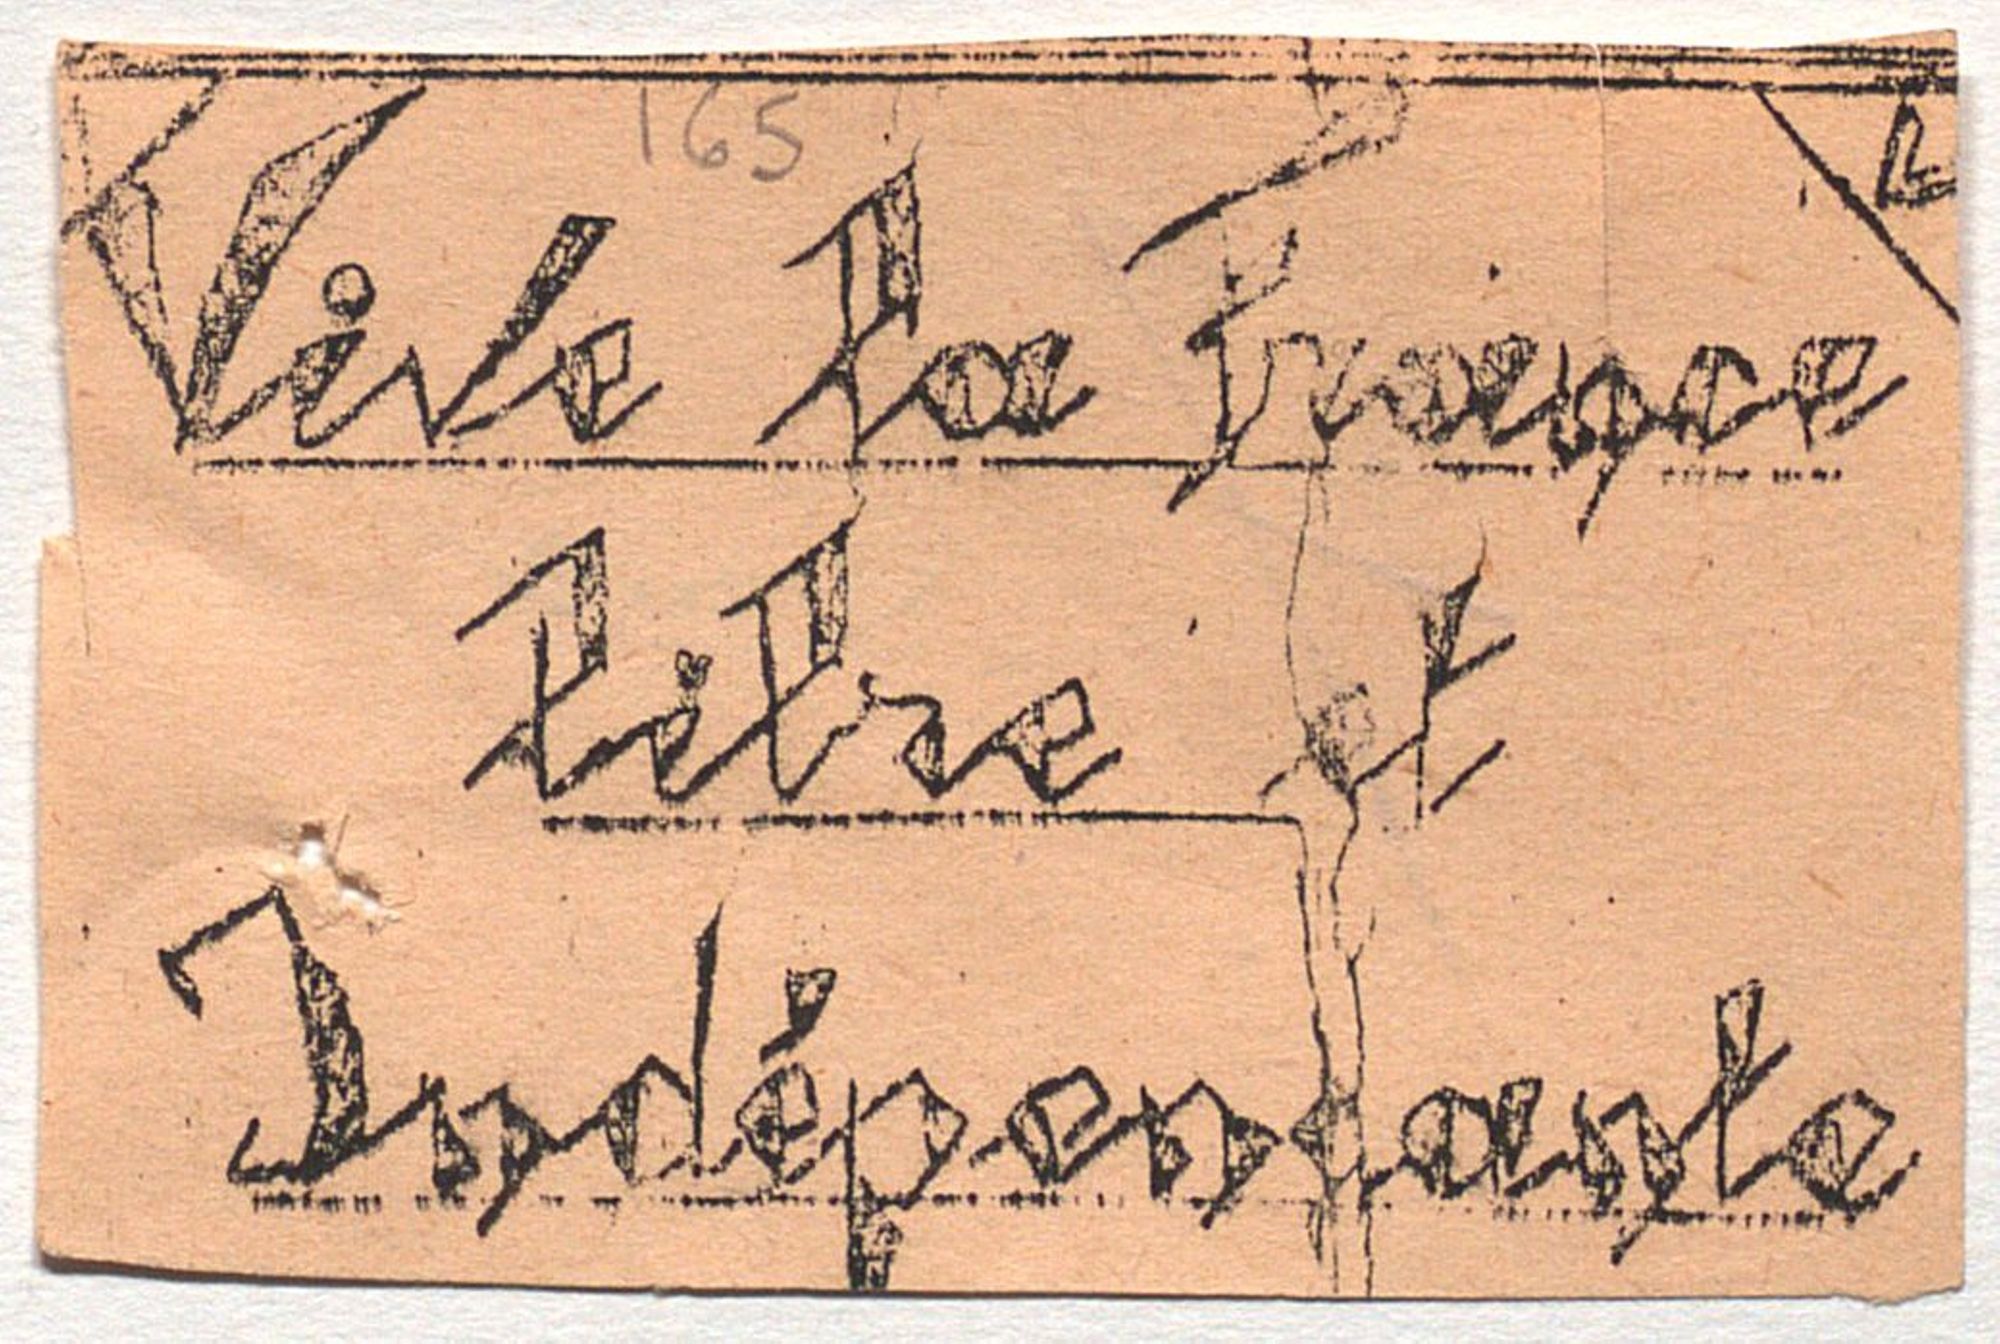 165
Vive la France
libre et
Indépendante